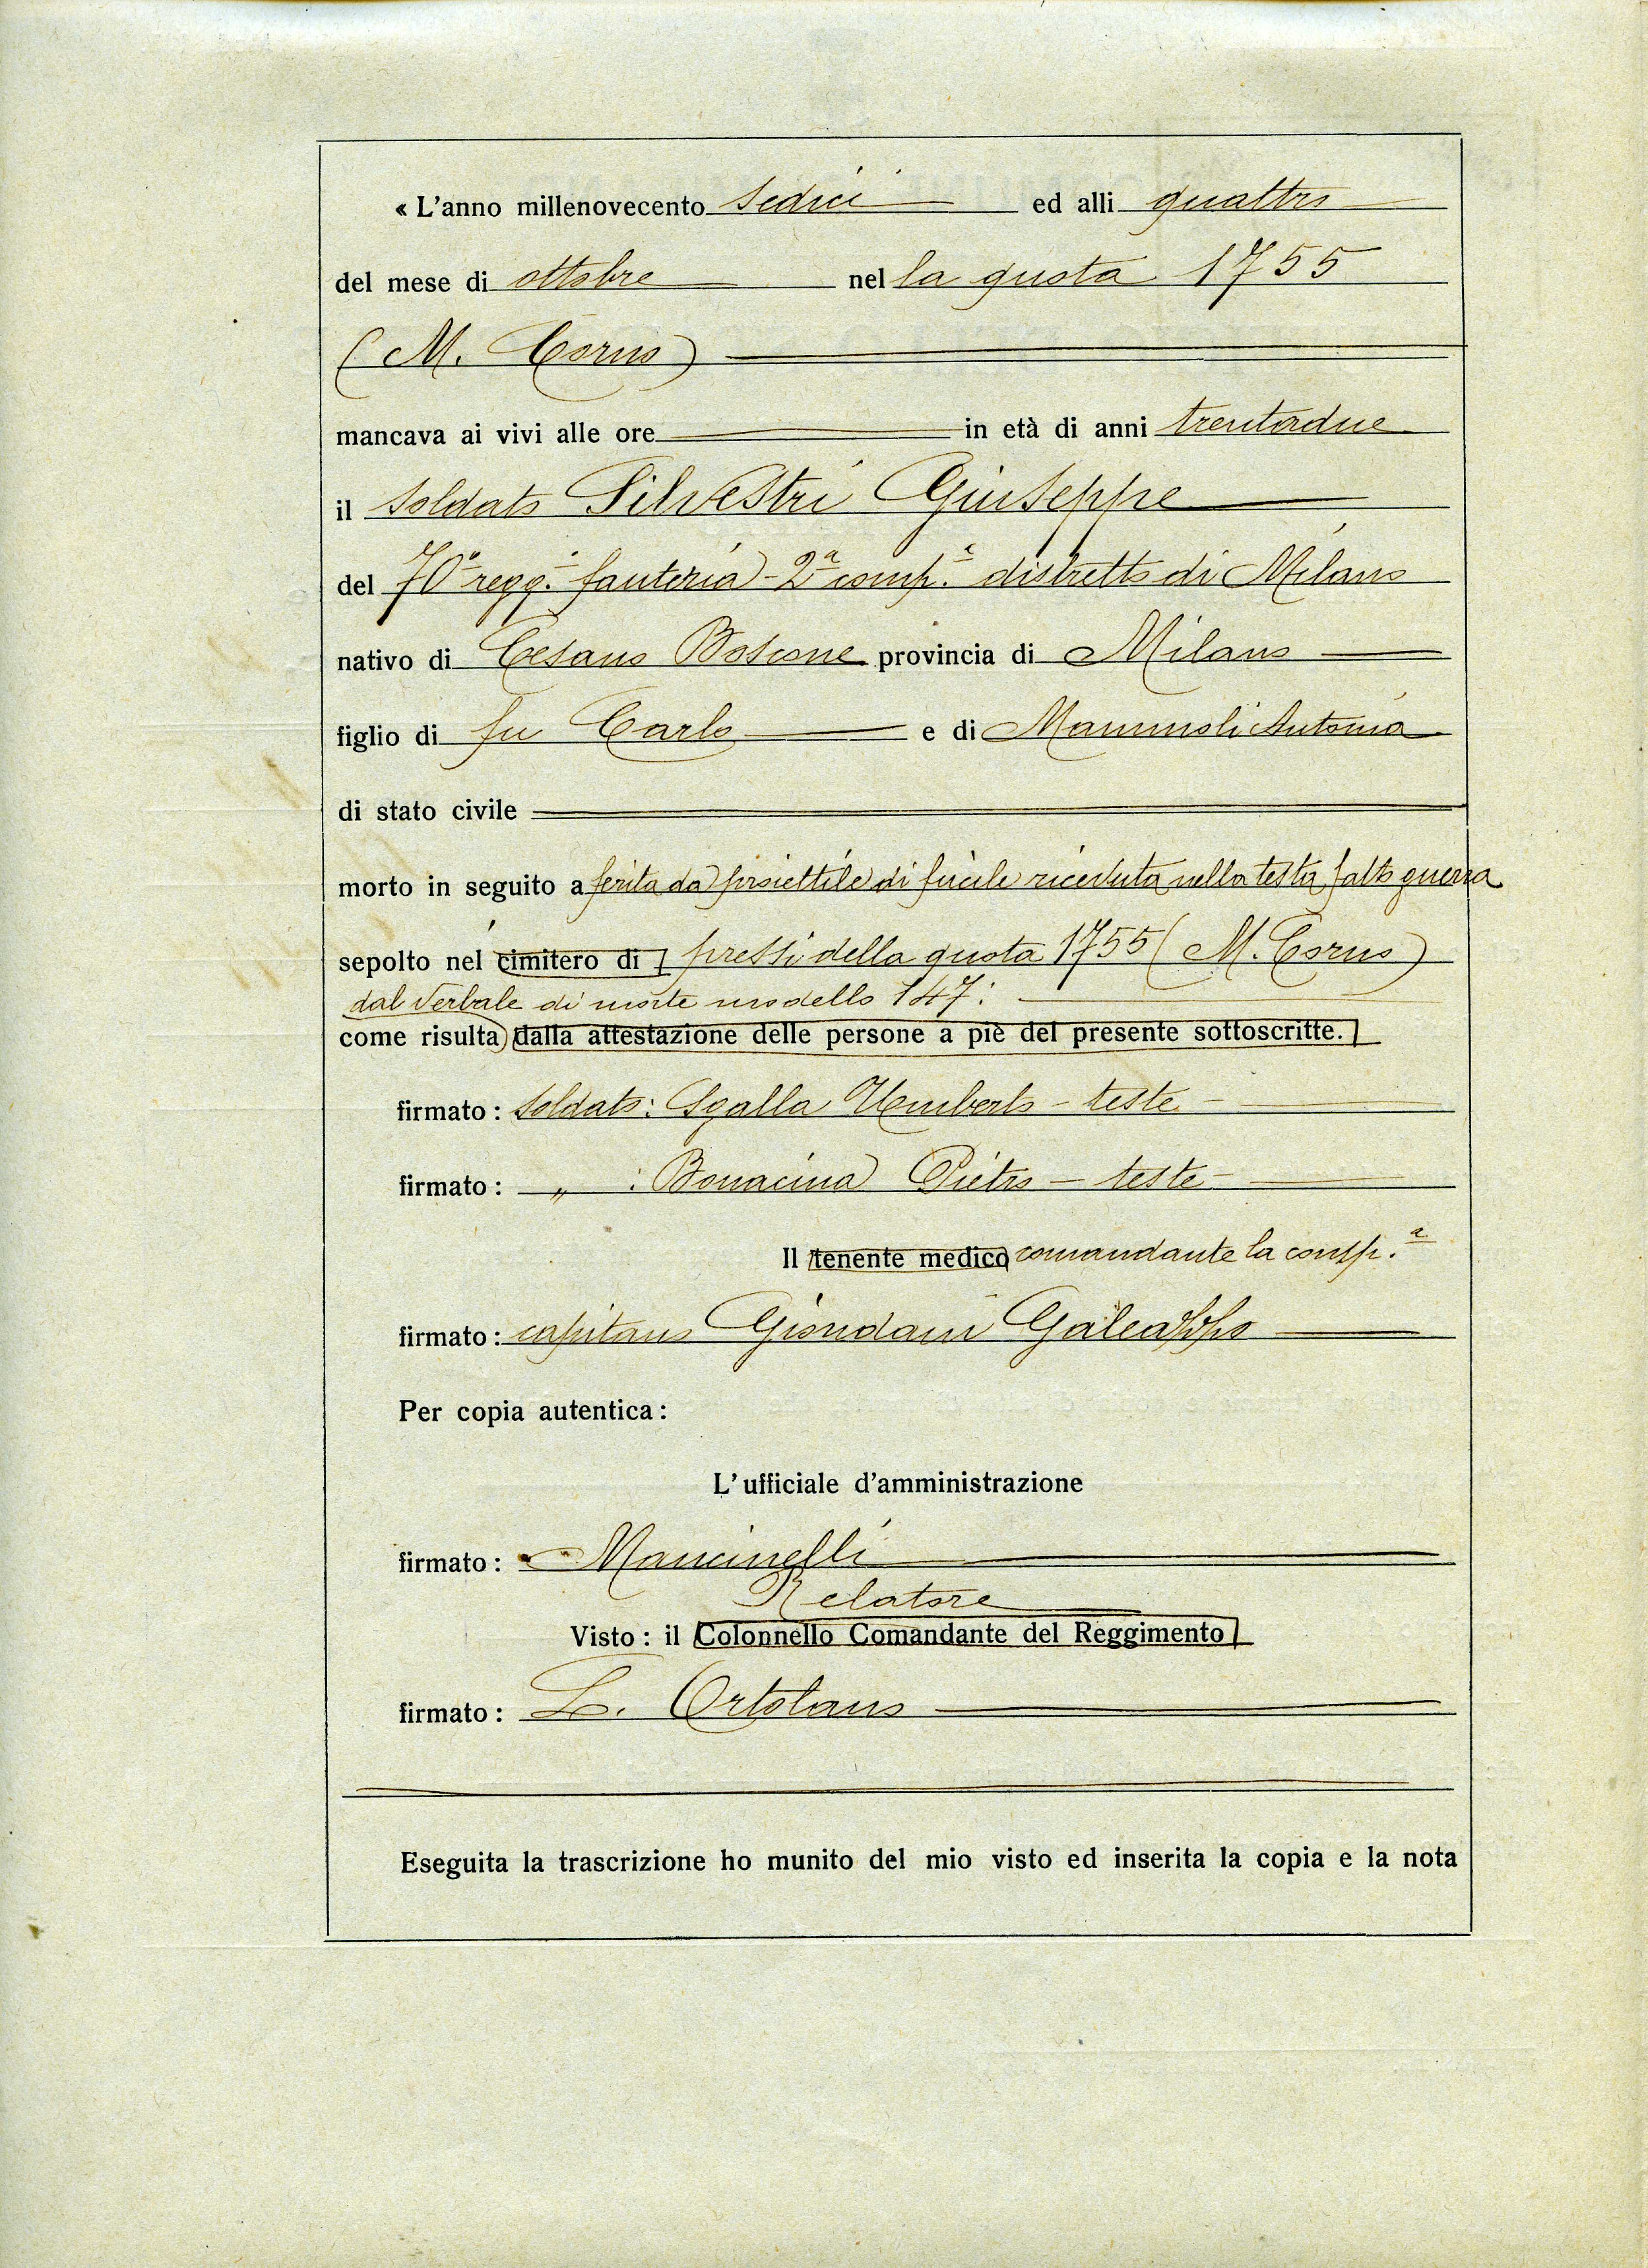 « L'anno millenovecento sedici ed alli quattro
del mese di ottobre nella quota 1755
(M. Corno)
mancava ai vivi alle ore in età di anni trentadue
il soldato Silvestri Giuseppe
del 70° regg. fanteria - 2ª comp.ª distretto di Milano
nativo di Cesano Boscone provincia di Milano
figlio di fu Carlo e di Mammoli Antonia
di stato civile
morto in seguito a ferita da proiettile di fucile ricevuta nella testa fatto guerra
sepolto nel cimitero di pressi della quota 1755 (M. Corno)
dal Verbale di morte modello 147:
come risulta dalla attestazione delle persone a piè del presente sottoscritte.
firmato: soldato: Sgalla Umberto - teste
firmato: " : Bonacina Pietro - teste
Il tenente medico comandante la comp.ª
firmato: capitano Giordani Galeazzo
Per copia autentica:
L'ufficiale d'amministrazione
firmato: Mancinelli
Relatore
Visto: il Colonnello Comandante del Reggimento
firmato: L. Ortolano
Eseguita la trascrizione ho munito del mio visto ed inserita la copia e la nota